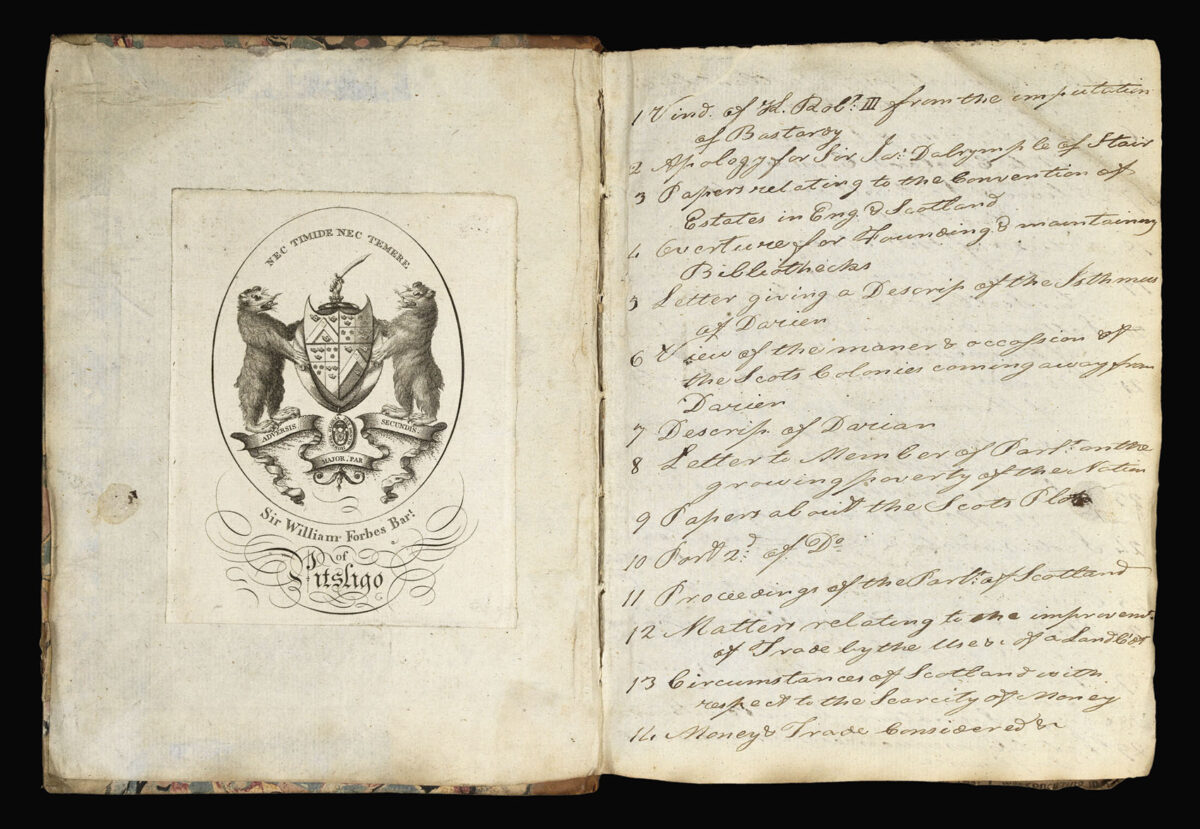 NEC TIMIDE NEC TEMERE
ADVERSIS
SECUNDIS.
MAJOR. PAR
Sir William Forbes Bart.
of
Pitsligo
1 Vind. of K. Robt. III from the imputation
of Bastardy
2 Apology for Sir Ja: Dalrymple of Stair
3 Papers relating to the Convention of
Estates in Eng. & Scotland
4 Overture for Founding & maintaining
Bibliothecks
5 Letter giving a Descrip of the Isthmus
of Darien
6 View of the maner & occassion of
the Scots Colonies coming away from
Darien
7 Descrip. of Darian
8 Letter to Member of Parlt. on the
growing poverty of the Nation
9 Papers about the Scots Plot
10 Part 2d. of Do
11 Proceedings of the Parlt. of Scotland
12 Matters relating to the improvemt.
of Trade by the Use &c of a Land
13 Circumstances of Scotland with
respect to the Scarcity of Money
14 Money & Trade Considered &c